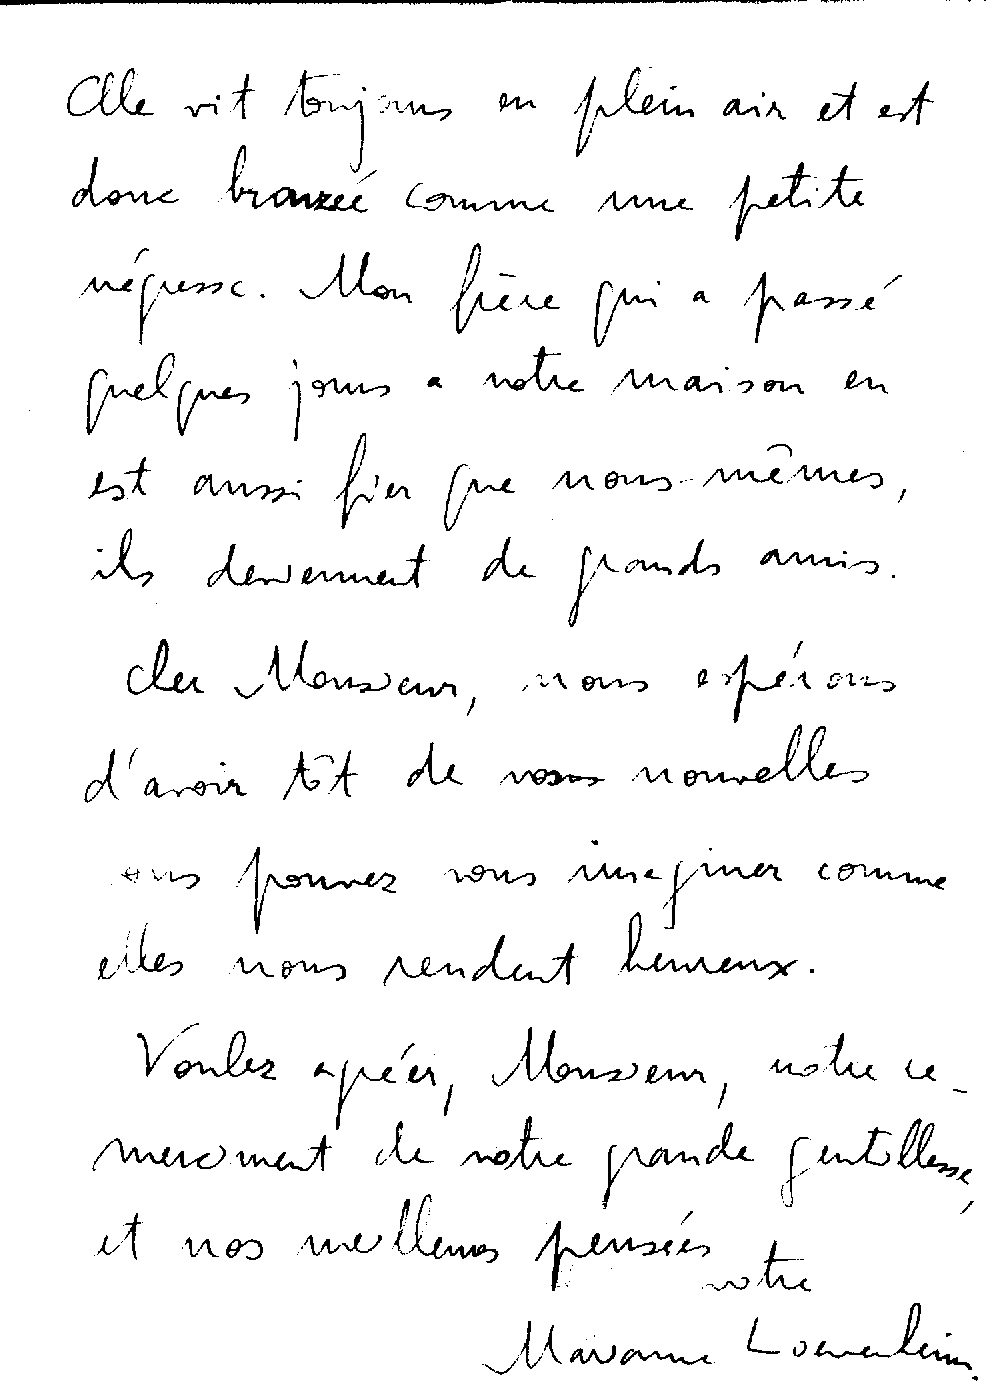 Elle vit toujours en plein air et est
donc bronzée comme une petite
négresse. Mon frère qui a passé
quelques jours a notre maison en
est aussi fier que nous-mêmes,
ils deviennent de grands amis.
Cher Monsieur, nous espérons
d'avoir tôt de vos nouvelles
vous pouvez vous imaginer comme
elles nous rendent heureux.
Voulez agréer, Monsieur, notre re-
merciment de votre grande gentillesse,
et nos meilleures pensées
votre
Marianne